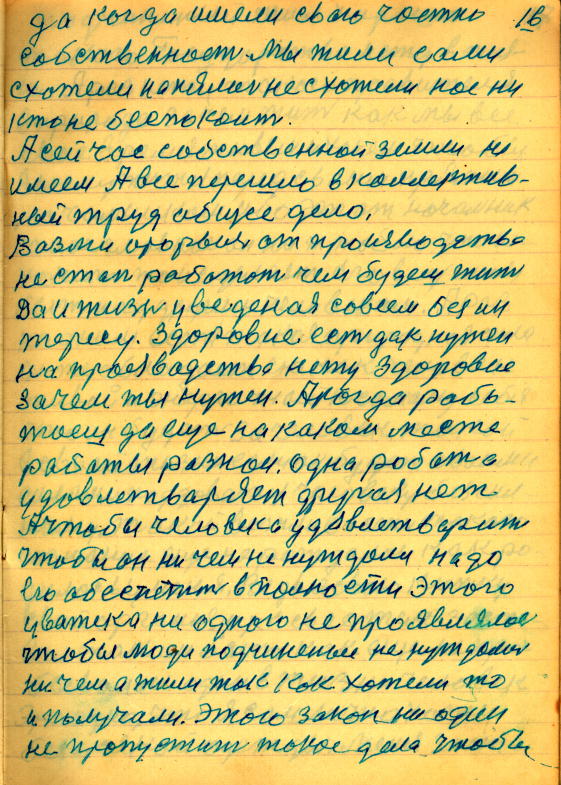 16
да когда имели свою частню
собственност мы жили сами
схотели напялои не схотели нас ни
кто не беспокоит.
А сейчас собственной земли не
имеем А все перешло в коллертив-
ный труд общее дело.
Возми оторвися от производства
не стал работат чем будеш жит
Да и жизн уведеная совсем без ин
тересу. Здоровие ест дак нужен
на произвадстве нету здоровие
зачем ты нужен. А когда рабо-
таеш да еще на каком месте
работы разной. одна работа
удовлетваряет другая нет
А чтобы человека удовлетварит
чтобы он ни чем не нуждался надо
его обеспетит в полности этого
уватека ни одного не проявлялос
чтобы люди подчиненые не нуждалис
ни чем а жили так как хотели то
и получали. Этого закон ни один
не пропустит такое дела чтобы